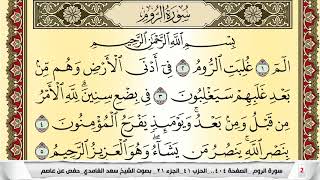 سُورَةُ الرُّومِ
بِسْمِ اللَّهِ الرَّحْمَٰنِ الرَّحِيمِ
الٓمٓ ١ غُلِبَتِ الرُّومُ ٢ فِىٓ أَدْنَى الْأَرْضِ وَهُم مِّنۢ
بَعْدِ غَلَبِهِمْ سَيَغْلِبُونَ ٣ فِى بِضْعِ سِنِينَ ۗ لِلَّهِ الْأَمْرُ
مِن قَبْلُ وَمِنۢ بَعْدُ ۚ وَيَوْمَئِذٍ يَفْرَحُ الْمُؤْمِنُونَ ٤
بِنَصْرِ اللَّهِ ۚ يَنصُرُ مَن يَشَآءُ ۖ وَهُوَ الْعَزِيزُ الرَّحِيمُ ٥
سورة الروم . الصفحة ٤٠٤ . الحزب ٤١ . الجزء ٢١ . بصوت الشيخ سعد الغامدي . حفص عن عاصم
2